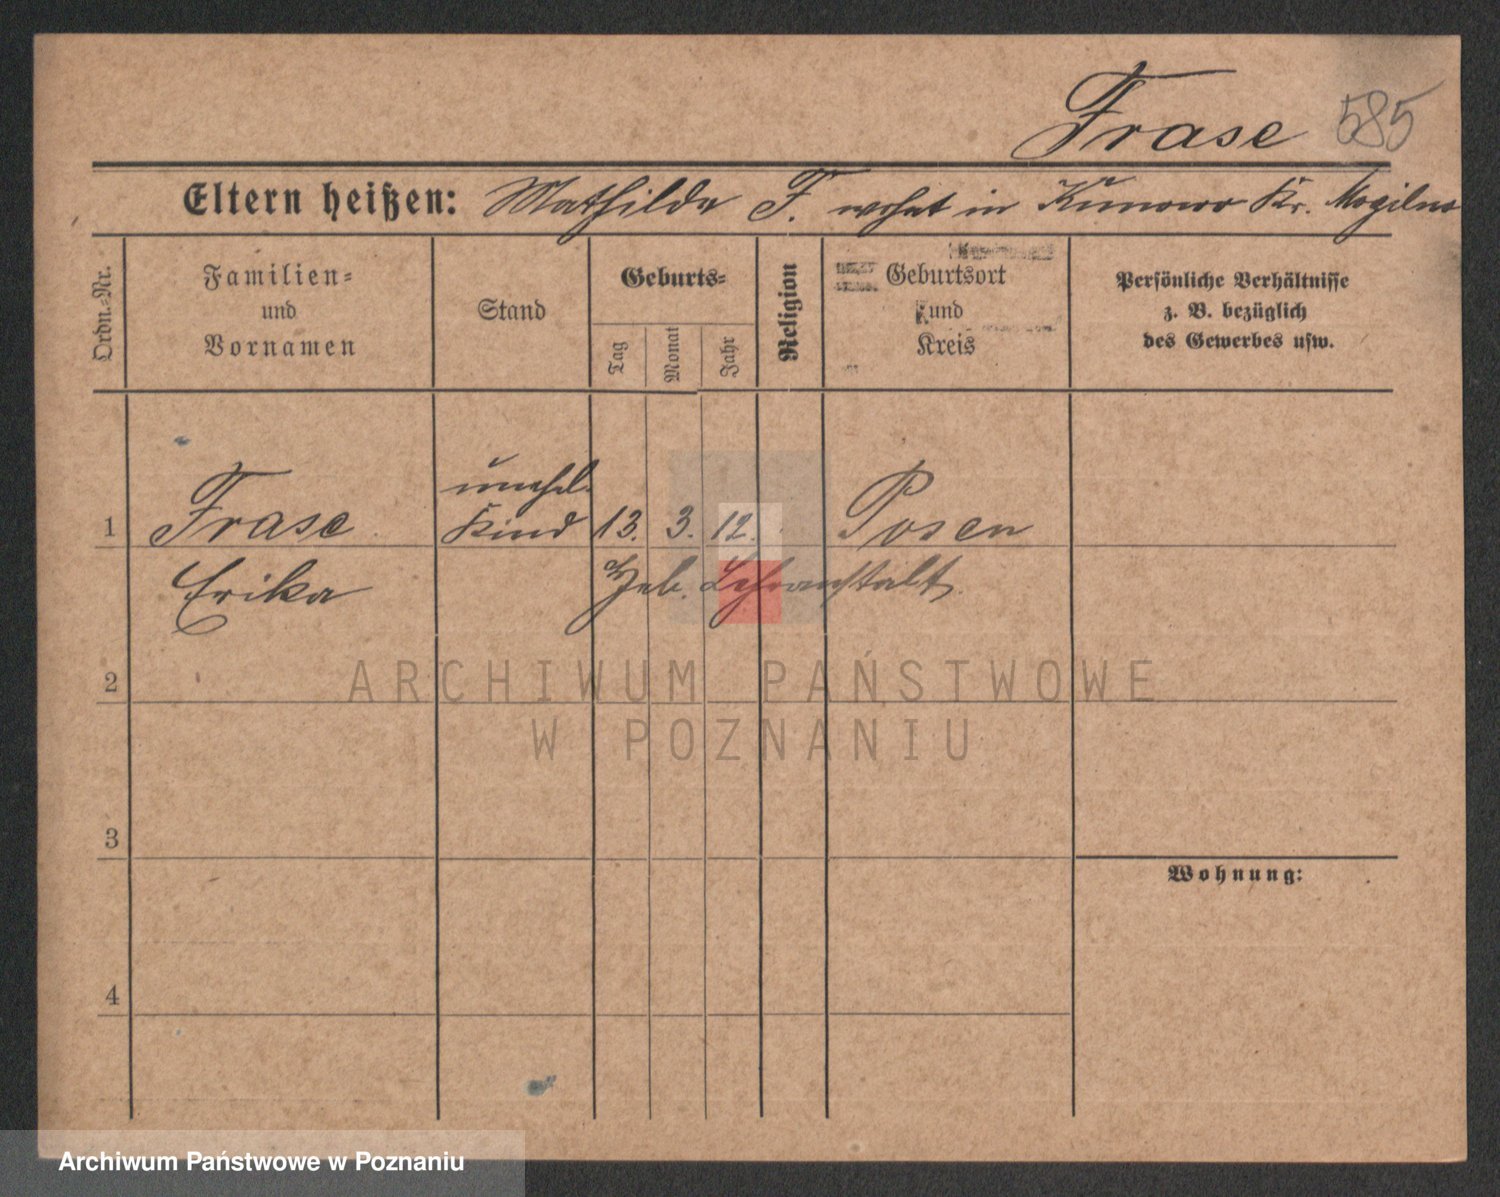 Frase 585
Eltern heißen: Mathilde F. wohnt in Kunowo Kr. Mogilno
Ordn.-Nr.
Familien-
und
Vornamen
Stand
Geburts-
Tag
Monat
Jahr
Religion
Geburtsort
und
Kreis
Persönliche Verhältnisse
z. B. bezüglich
des Gewerbes usw.
unehel.
1 Frase Kind 13. 3. 12. Posen
Erika Heb. Lehranstalt
ARCHIWUM PAŃSTWOWE
2
W POZNANIU
3
Wohnung:
4
Archiwum Państwowe w Poznaniu